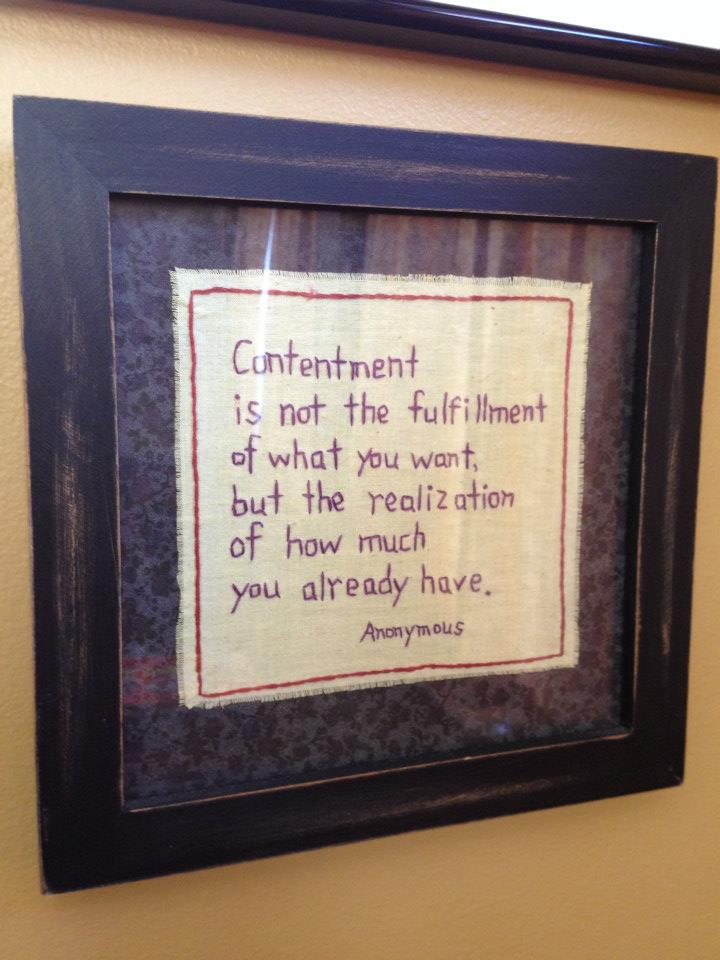 Contentment
is not the fulfillment
of what you want,
but the realization
of how much
you already have.
Anonymous